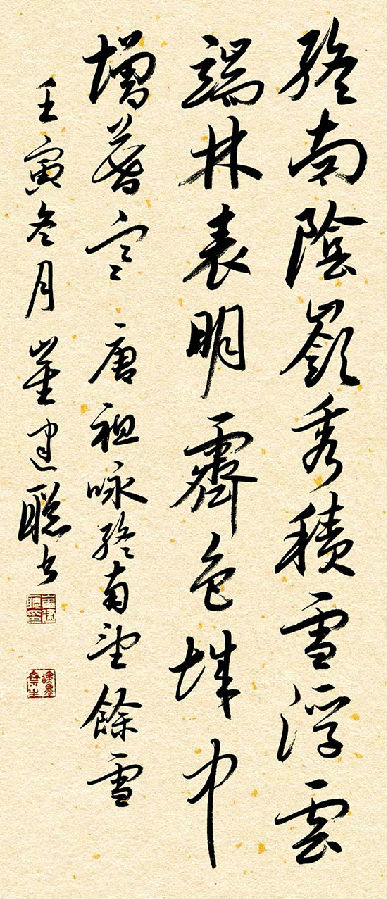 終南陰嶺秀積雪浮雲
端林表明霽色城中
增暮寒 唐祖咏終南望餘雪
壬寅冬月董建聰书